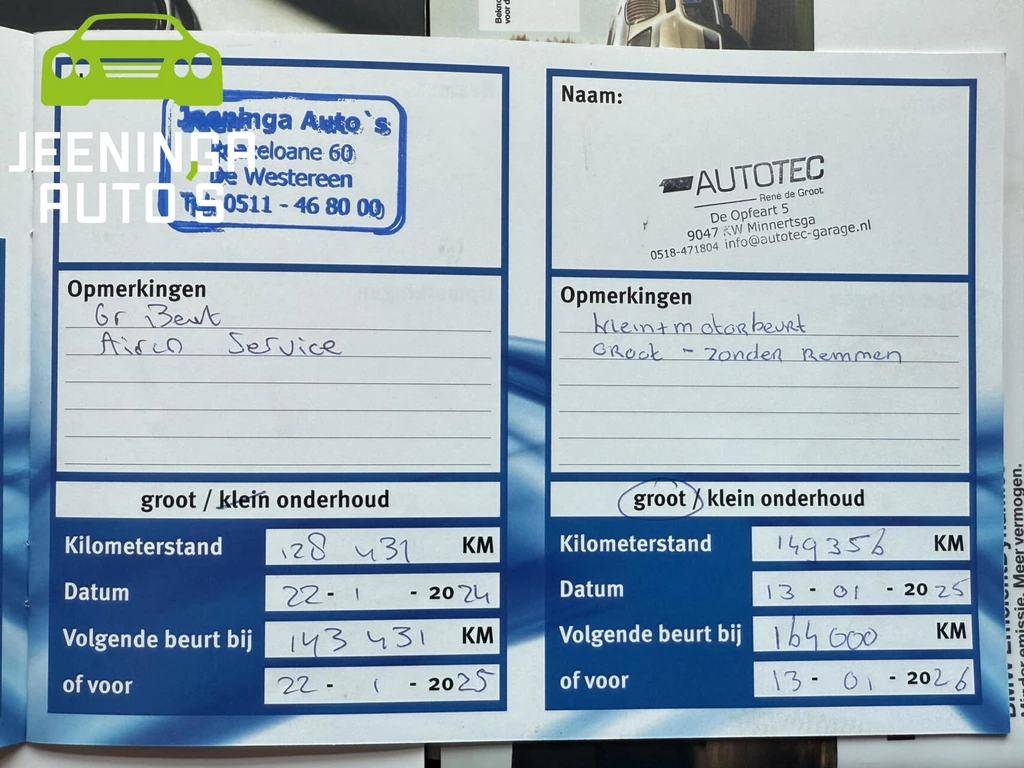 JEENINGA
AUTO'S
Jeeninga Auto`s
60
De Westereen
Tel. 0511 - 46 80 00
Opmerkingen
Gr Beurt
Airco Service
groot / klein onderhoud
Kilometerstand 128 431 KM
Datum 22 - 1 - 2024
Volgende beurt bij 143 431 KM
of voor 22 - 1 - 2025
Naam:
AUTOTEC
René de Groot
De Opfeart 5
9047 KW Minnertsga
0518-471804 info@autotec-garage.nl
Opmerkingen
klein+motorbeurt
GROOt - zonder Remmen
groot / klein onderhoud
Kilometerstand 149356 KM
Datum 13 - 01 - 2025
Volgende beurt bij 164000 KM
of voor 13 - 01 - 2026
Minder emissie. Meer vermogen.